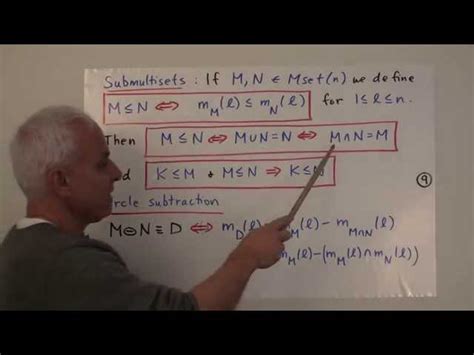 Submultisets : If M, N ∈ Mset(n) we define
M ≤ N ⇔ m_M(l) ≤ m_N(l) for 1≤l≤n.
Then M ≤ N ⇔ M∪N = N ⇔ M∩N = M
K ≤ M + M ≤ N ⇒ K ≤
9
subtraction
M⊖N ≡ D ⇔ m_D(l) m_M(l) - m_{M∩N}(l)
m_M(l) - (m_M(l) ∩ m_N(l))